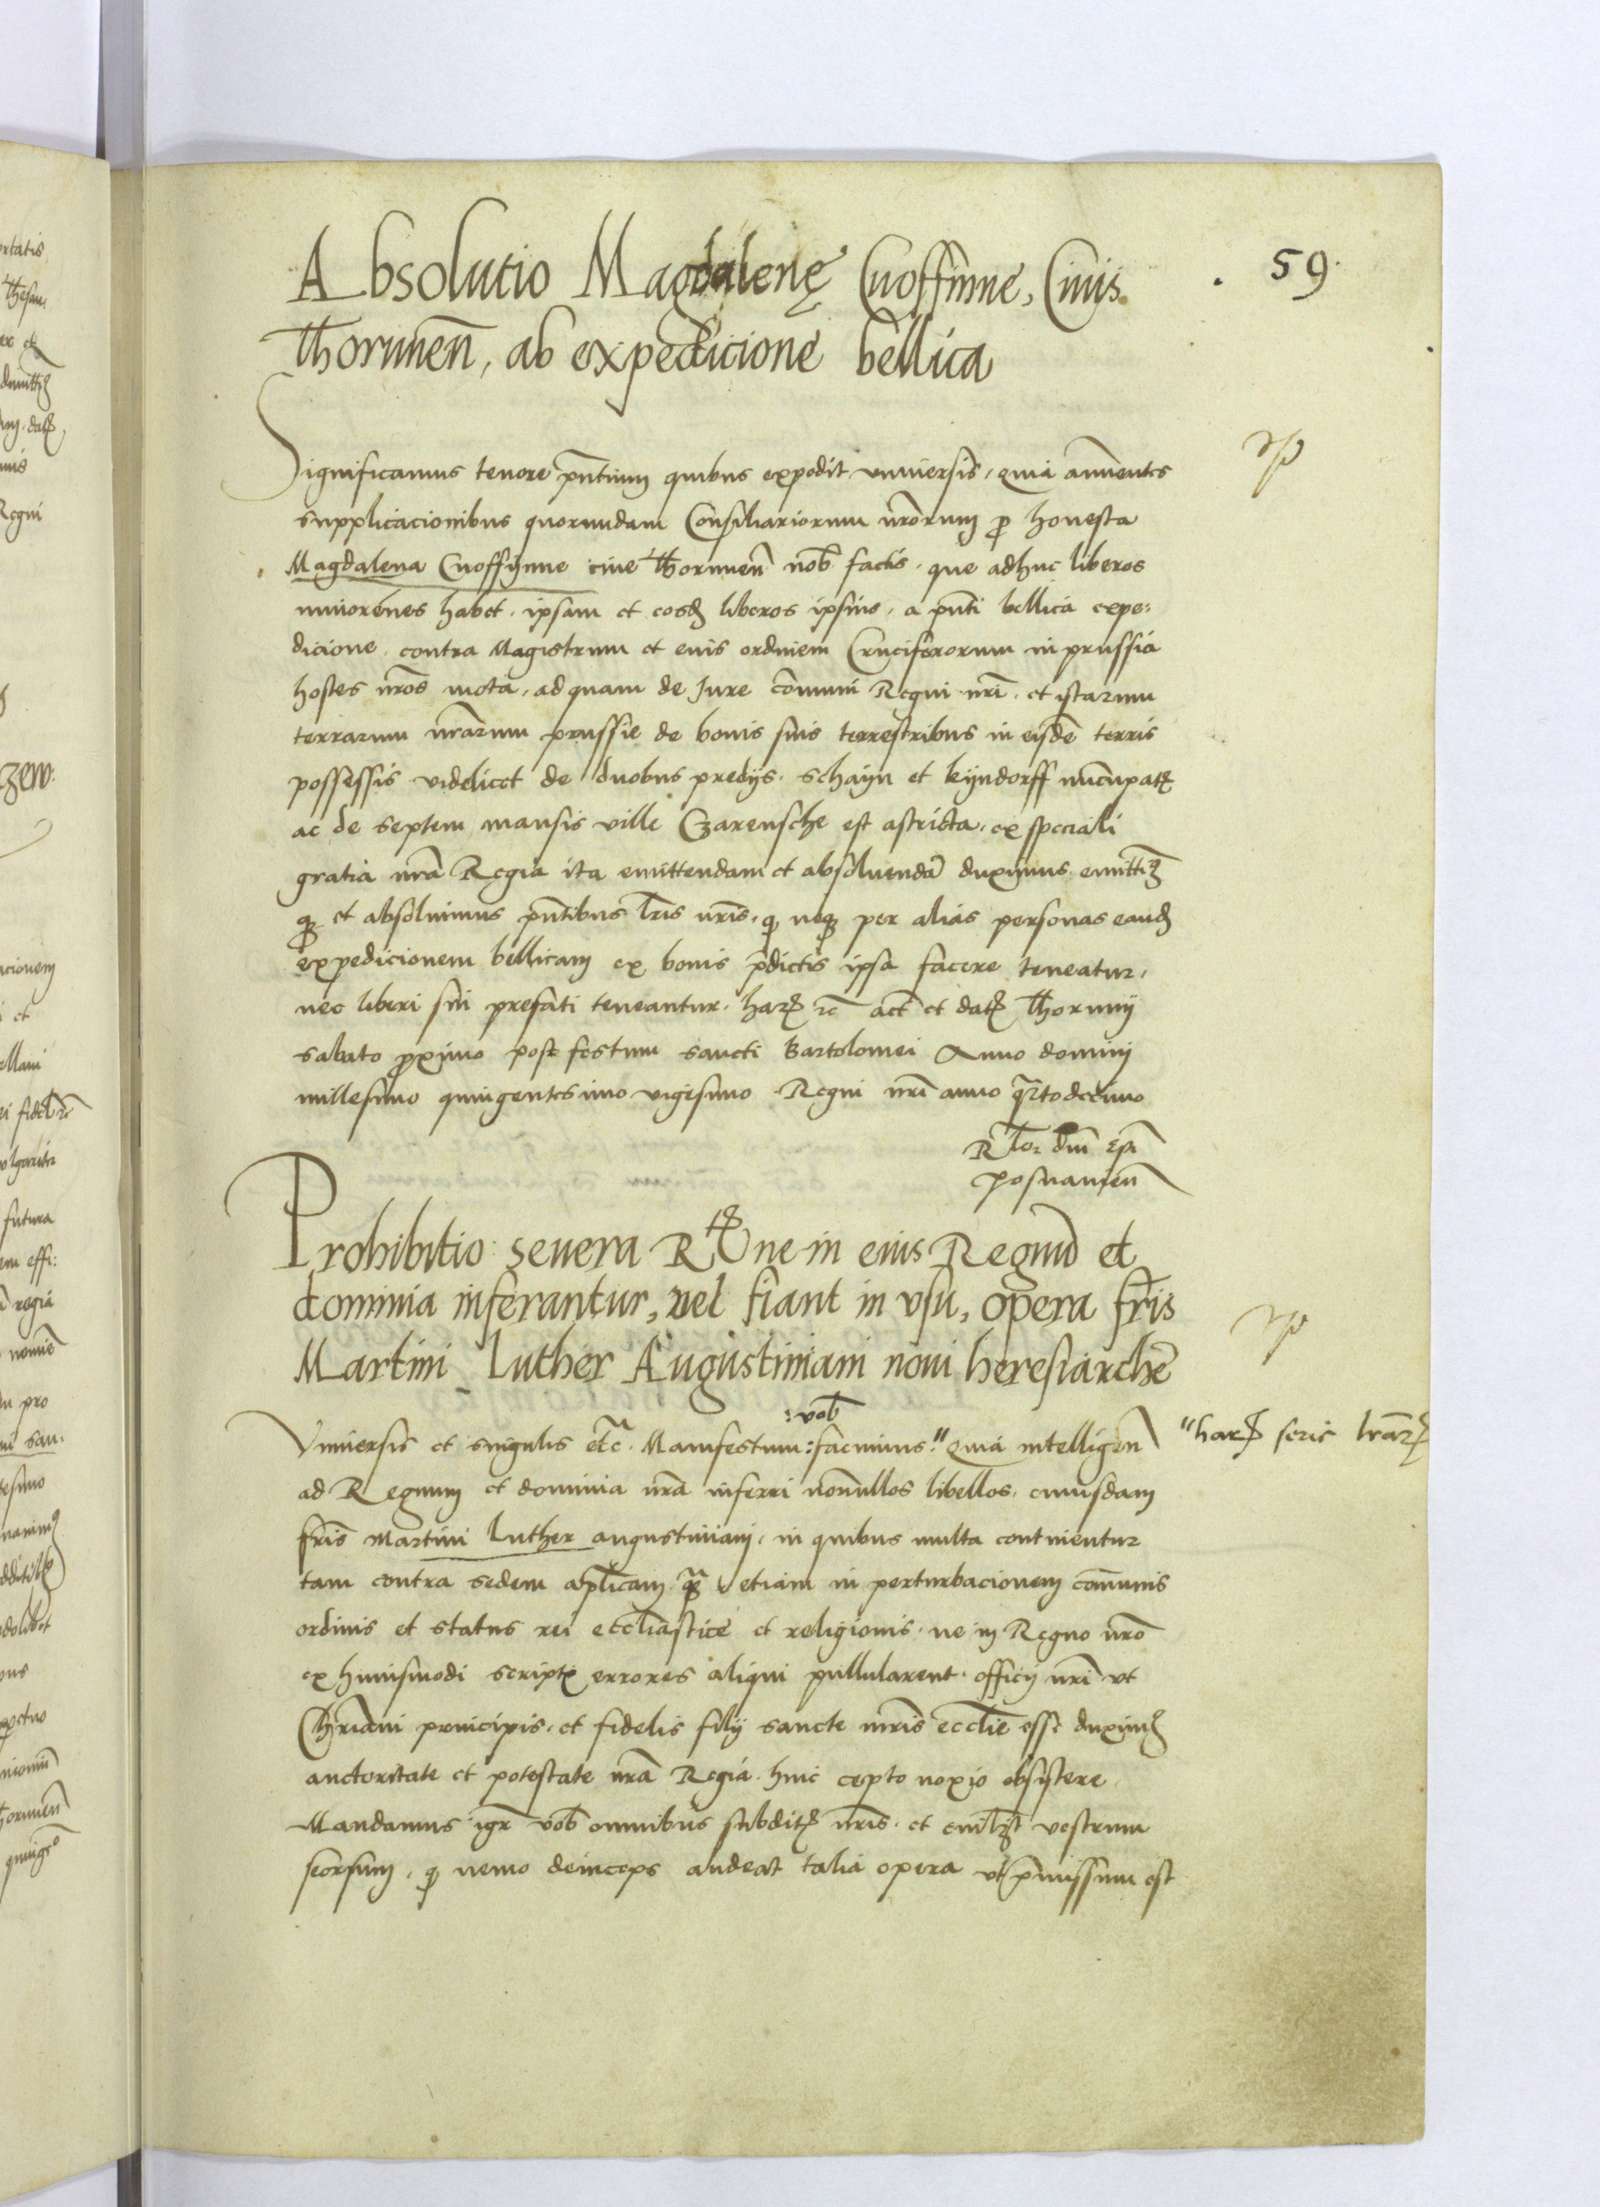 59.
Absolutio Magdalenę Cuoffinne, Ciuis
Thorunen̄, ab expedicione bellica
Significamus tenore pn̄tium quibus expedit vniuersis, quia annuentes
supplicacionibus quorundam Consiliariorum nr̄orum p̱ honesta
Magdalena Cuoffÿnne ciue Thorunen̄ nob̄ factis, que adhuc liberos
minorennes habet, ipsam et eosd̄ liberos ipsius, a pn̄ti bellica expe:
dicione, contra Magistrum et eius ordinem Cruciferorum in prussia
hostes nr̄os mota, ad quam de Jure com̄uni Regni nr̄i, et istarum
terrarum nr̄arum prussie de bonis suis terrestribus in eisdē terris
possessis videlicet de duobus predÿs, schaÿn et kÿndorff nūcupatꝭ
ac de septem mansis ville Czarensche est astricta, ex speciali
gratia nr̄a Regia ita emittendam et absoluendā duximus, emittiꝫ
qꝫ et absoluimus pn̄tibus lr̄is nr̄is, ꝙ neqꝫ per alias personas eand̄
expedicionem bellicam ex bonis p̄dictis ipsa facere teneatur,
nec liberi sui prefati teneantur, harꝝ ⁊c̄ act̄ et datꝭ Thorunÿ
sabato ꝓximo post festum sancti Bartolomei Anno domini
millesimo quingentesimo vigesimo Regni nr̄i anno q̄rtodecimo
Rl̄o: dn̄i Ep̄i
Posnanien̄
Prohibitio seuera R ne in eius Regnū et
dominia inferantur, uel fiant in vsu, opera fr̄is
Martini Luther Augustiniani noui heresiarche
:vob̄
Vniuersis et singulis etc̄. Manifestum :facimus." Quia intelligen̄ "harꝝ serie lr̄arꝝ
ad Regnum et dominia nr̄a inferri nonnullos libellos, cuiusdam
fr̄is Martini Luther augustiniani, in quibus multa continentur
tam contra sedem ap̄licam qꝫ etiam in perturbacionem com̄unis
ordinis et status rei eccl̄iastice et religionis, ne in Regno nr̄o
ex huiusmodi scriptꝭ errores aliqui pullularent, officij nr̄i vt
Chr̄iani principis, et fidelis filÿ sancte mr̄is eccl̄ie esse duximꝰ
auctoritate et potestate nr̄a Regia huic cepto noxio obsistere,
Mandamus igr̄ vob̄ omnibus subditꝭ nr̄is, et cuil̄ꝫt vestrum
seorsum, ꝙ nemo deinceps audeat talia opera vt p̄missum est